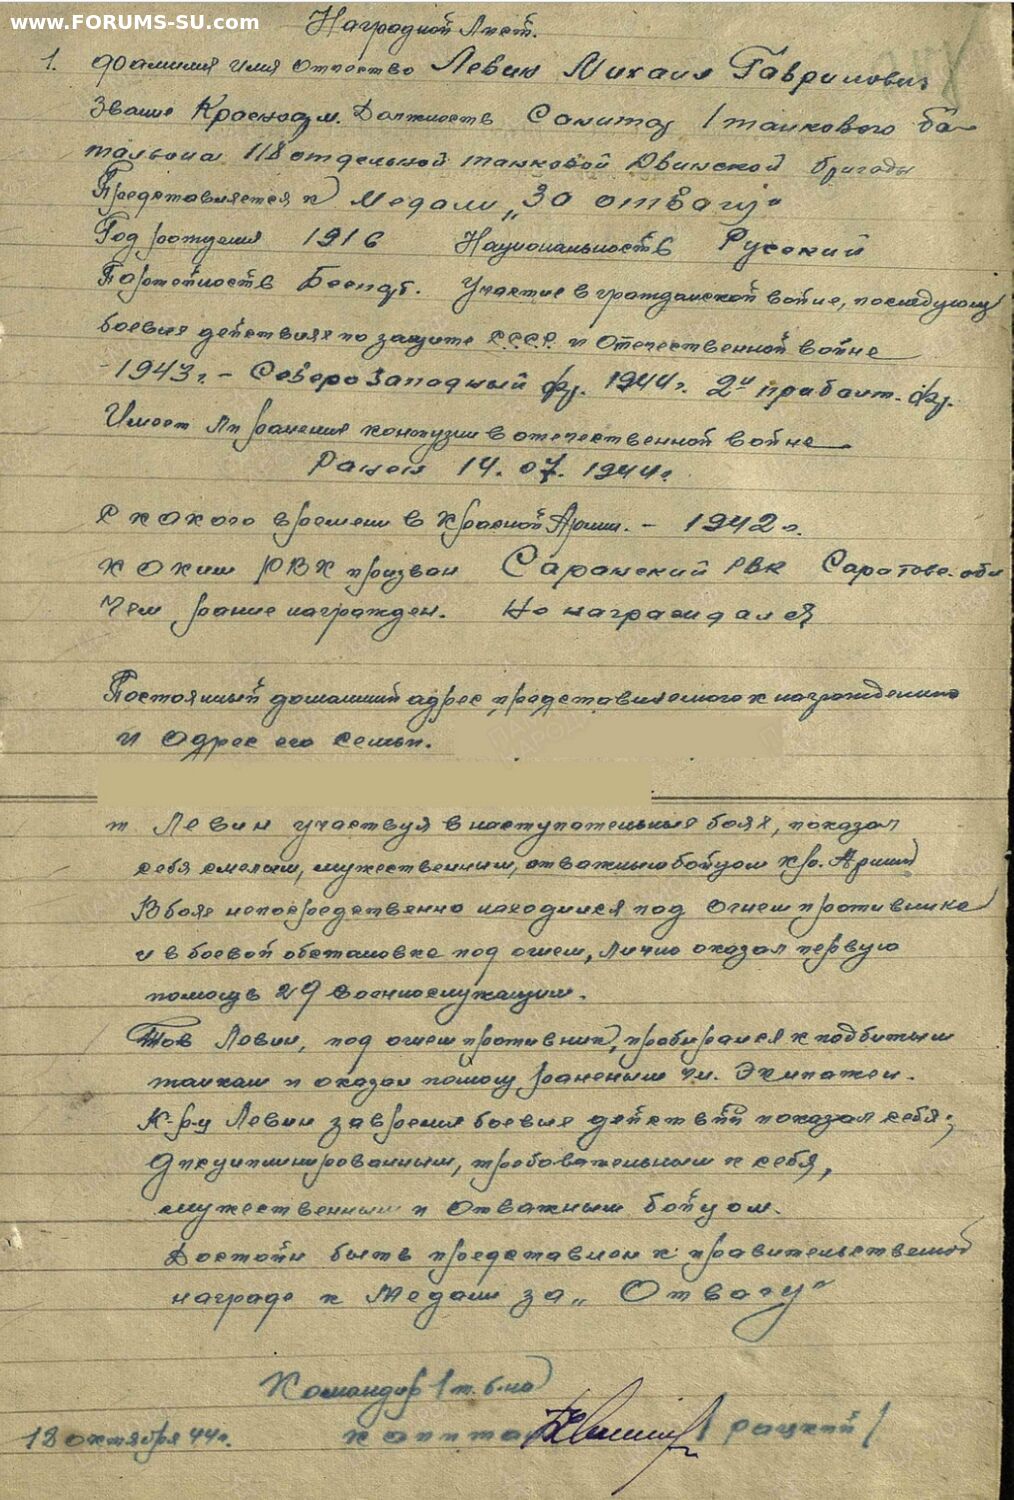 www.FORUMS-SU.com
Наградной Лист.
1. Фамилия имя отчество Левин Михаил Гаврилович
Звание Красноарм. Должность Санитар 1 танкового ба-
тальона 118 отдельной танковой Двинской бригады
Представляется к Медали „За отвагу“
Год рождения 1916 Национальность Русский
Партейность Беспарт. Участие в гражданской войне, последующих
боевых действиях по защите С.С.С.Р. и Отечественной войне
1943 г. – Северо Западный фр. 1944 г. 2й прибалт. фр.
Имеет ли ранения контузии в отечественной войне
Ранен 14.07.1944 г.
С какого времени в Красной Армии. – 1942 г.
Каким РВК призван Саранский РВК Саратовс. обл
Чем ранее награжден. Не награждался
Постоянный домашний адрес представляемого к награждению
и адрес его семьи.
т Левин участвуя в наступательных боях, показал
себя смелым, мужественным, отважным бойцом Кр. Армии
В боях непосредственно находился под огнем противника
и в боевой обстановке под огнем, лично оказал первую
помощь 29 военнослужащим.
Тов Левин, под огнем противник, пробирался к подбитым
танкам и оказал помощ раненым чл. Экипажей.
К-р-ц Левин за время боевых действий показал себя;
Дисциплинированным, требовательным к себе,
мужественным и отважным бойцом.
Достоин быть представлен к правительственной
награде к Медали за „Отвагу“
Командир 1 т. б-на
18 октября 44 г. капитан / рацкий /